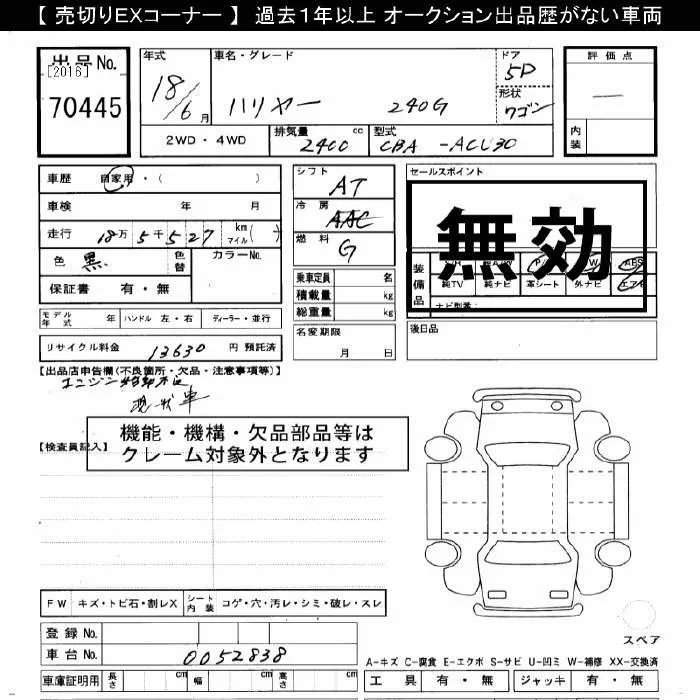 【 売切りEXコーナー 】 過去1年以上 オークション出品歴がない車両
出品No.
[2016]
70445
年式
18/6月
車名・グレード
ハリヤー 240G
ドア
5D
形状
ワゴン
評価点
—
内装
2WD・4WD
排気量 2400 cc
型式 CBA -ACU30
車歴 自家用・( )
車検 年 月
走行 18万5千527 km マイル( )
色 黒 色替 カラーNo.
保証書 有・無
シフト AT
冷房 AAC
燃料 G
乗車定員 名
積載量 kg
総重量 kg
セールスポイント
無効
装備品 S/R 純A/W P/ W ABS
純TV 純ナビ 革シート 外ナビ エアB
ナビ型番:
モデル年式 年 ハンドル 左・右 ディーラー・並行
名変期限 月 日
後日品
リサイクル料金 13630 円 預託済
【出品店申告欄(不良箇所・欠品・注意事項等)】
エンジン始動不良
現状車
機能・機構・欠品部品等は
クレーム対象外となります
【検査員記入】
FW キズ・トビ石・割レX シート内装 コゲ・穴・汚レ・シミ・破レ・スレ
スペア
登録 No.
車台 No. 0052838
A-キズ C-腐食 E-エクボ S-サビ U-凹ミ W-補修 XX-交換済
車庫証明用 長さ cm 幅 cm 高さ cm
工具 有・無 ジャッキ 有・無